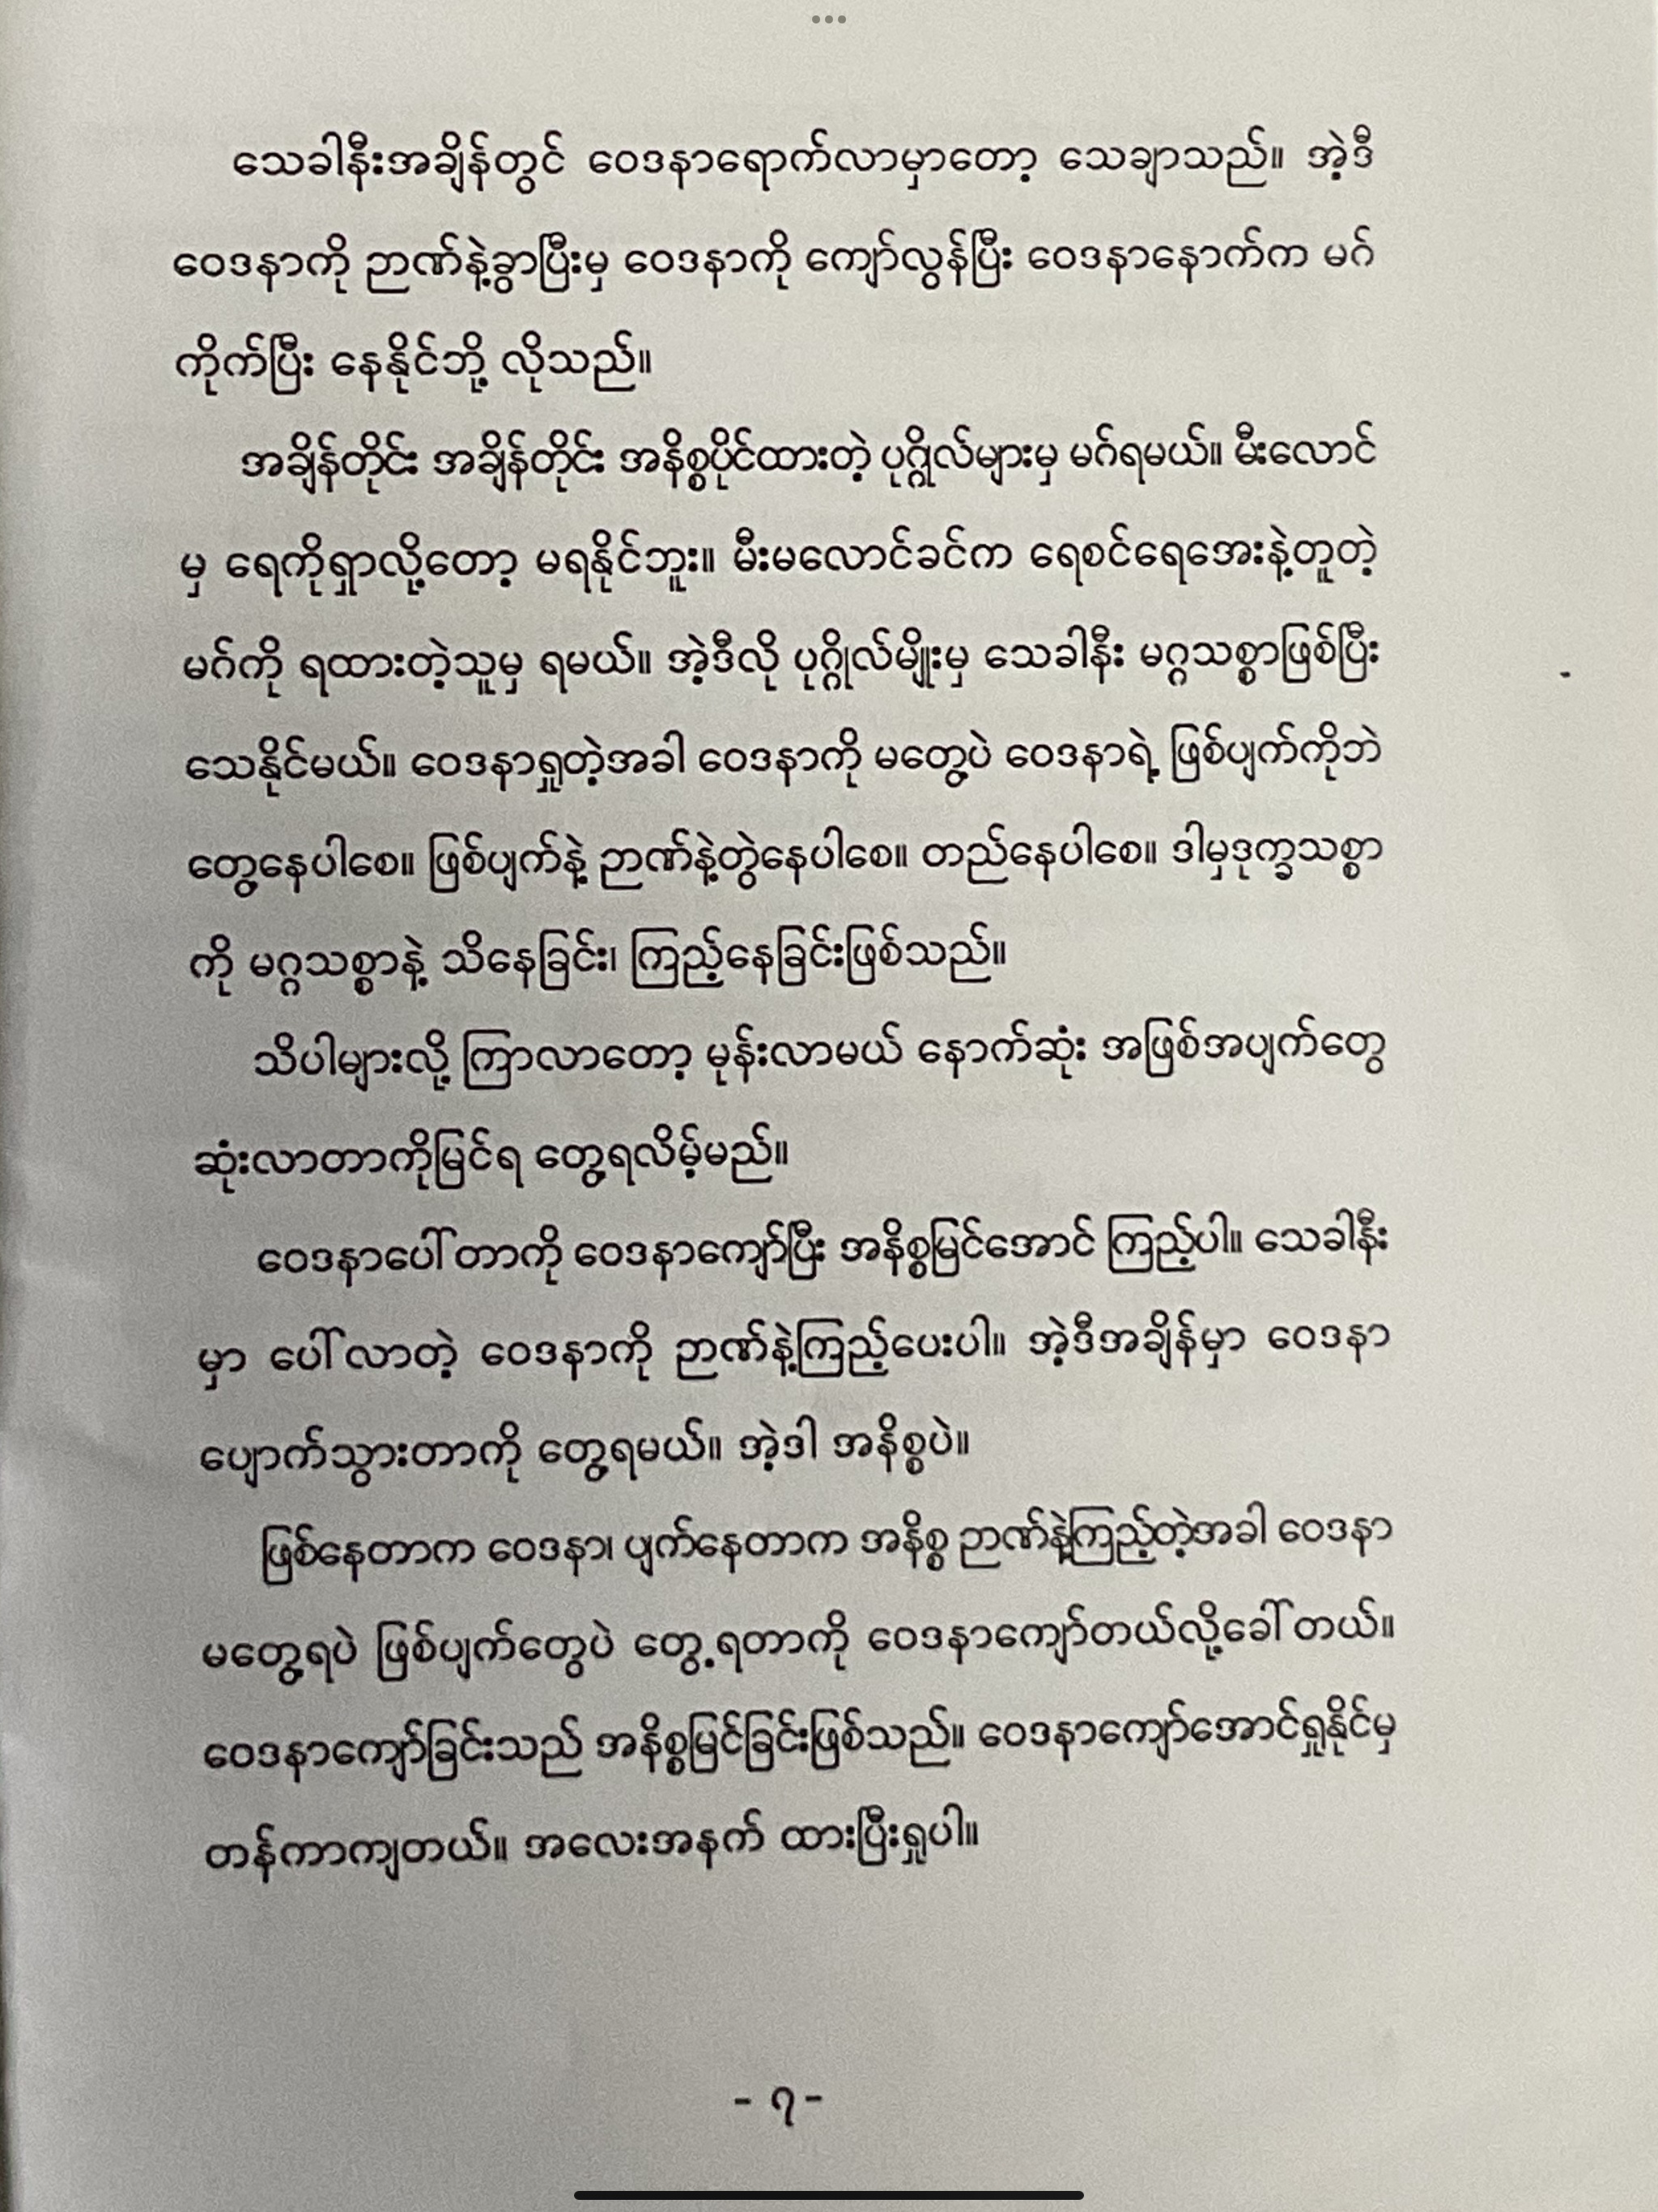 သေခါနီးအချိန်တွင် ဝေဒနာရောက်လာမှာတော့ သေချာသည်။ အဲ့ဒီ
ဝေဒနာကို ဉာဏ်နဲ့ခွာပြီးမှ ဝေဒနာကို ကျော်လွန်ပြီး ဝေဒနာနောက်က မဂ်
ကိုက်ပြီး နေနိုင်ဘို့ လိုသည်။
အချိန်တိုင်း အချိန်တိုင်း အနိစ္စပိုင်ထားတဲ့ ပုဂ္ဂိုလ်များမှ မဂ်ရမယ်။ မီးလောင်
မှ ရေကိုရှာလို့တော့ မရနိုင်ဘူး။ မီးမလောင်ခင်က ရေစင်ရေအေးနဲ့တူတဲ့
မဂ်ကို ရထားတဲ့သူမှ ရမယ်။ အဲ့ဒီလို ပုဂ္ဂိုလ်မျိုးမှ သေခါနီး မဂ္ဂသစ္စာဖြစ်ပြီး
သေနိုင်မယ်။ ဝေဒနာရှုတဲ့အခါ ဝေဒနာကို မတွေ့ပဲ ဝေဒနာရဲ့ ဖြစ်ပျက်ကိုဘဲ
တွေ့နေပါစေ။ ဖြစ်ပျက်နဲ့ ဉာဏ်နဲ့တွဲနေပါစေ။ တည်နေပါစေ။ ဒါမှဒုက္ခသစ္စာ
ကို မဂ္ဂသစ္စာနဲ့ သိနေခြင်း၊ ကြည့်နေခြင်းဖြစ်သည်။
သိပါများလို့ ကြာလာတော့ မုန်းလာမယ် နောက်ဆုံး အဖြစ်အပျက်တွေ
ဆုံးလာတာကိုမြင်ရ တွေ့ရလိမ့်မည်။
ဝေဒနာပေါ်တာကို ဝေဒနာကျော်ပြီး အနိစ္စမြင်အောင် ကြည့်ပါ။ သေခါနီး
မှာ ပေါ်လာတဲ့ ဝေဒနာကို ဉာဏ်နဲ့ကြည့်ပေးပါ။ အဲ့ဒီအချိန်မှာ ဝေဒနာ
ပျောက်သွားတာကို တွေ့ရမယ်။ အဲ့ဒါ အနိစ္စပဲ။
ဖြစ်နေတာက ဝေဒနာ၊ ပျက်နေတာက အနိစ္စ ဉာဏ်နဲ့ကြည့်တဲ့အခါ ဝေဒနာ
မတွေ့ရပဲ ဖြစ်ပျက်တွေပဲ တွေ့ရတာကို ဝေဒနာကျော်တယ်လို့ခေါ်တယ်။
ဝေဒနာကျော်ခြင်းသည် အနိစ္စမြင်ခြင်းဖြစ်သည်။ ဝေဒနာကျော်အောင်ရှုနိုင်မှ
တန်ကာကျတယ်။ အလေးအနက် ထားပြီးရှုပါ။
- ၇ -